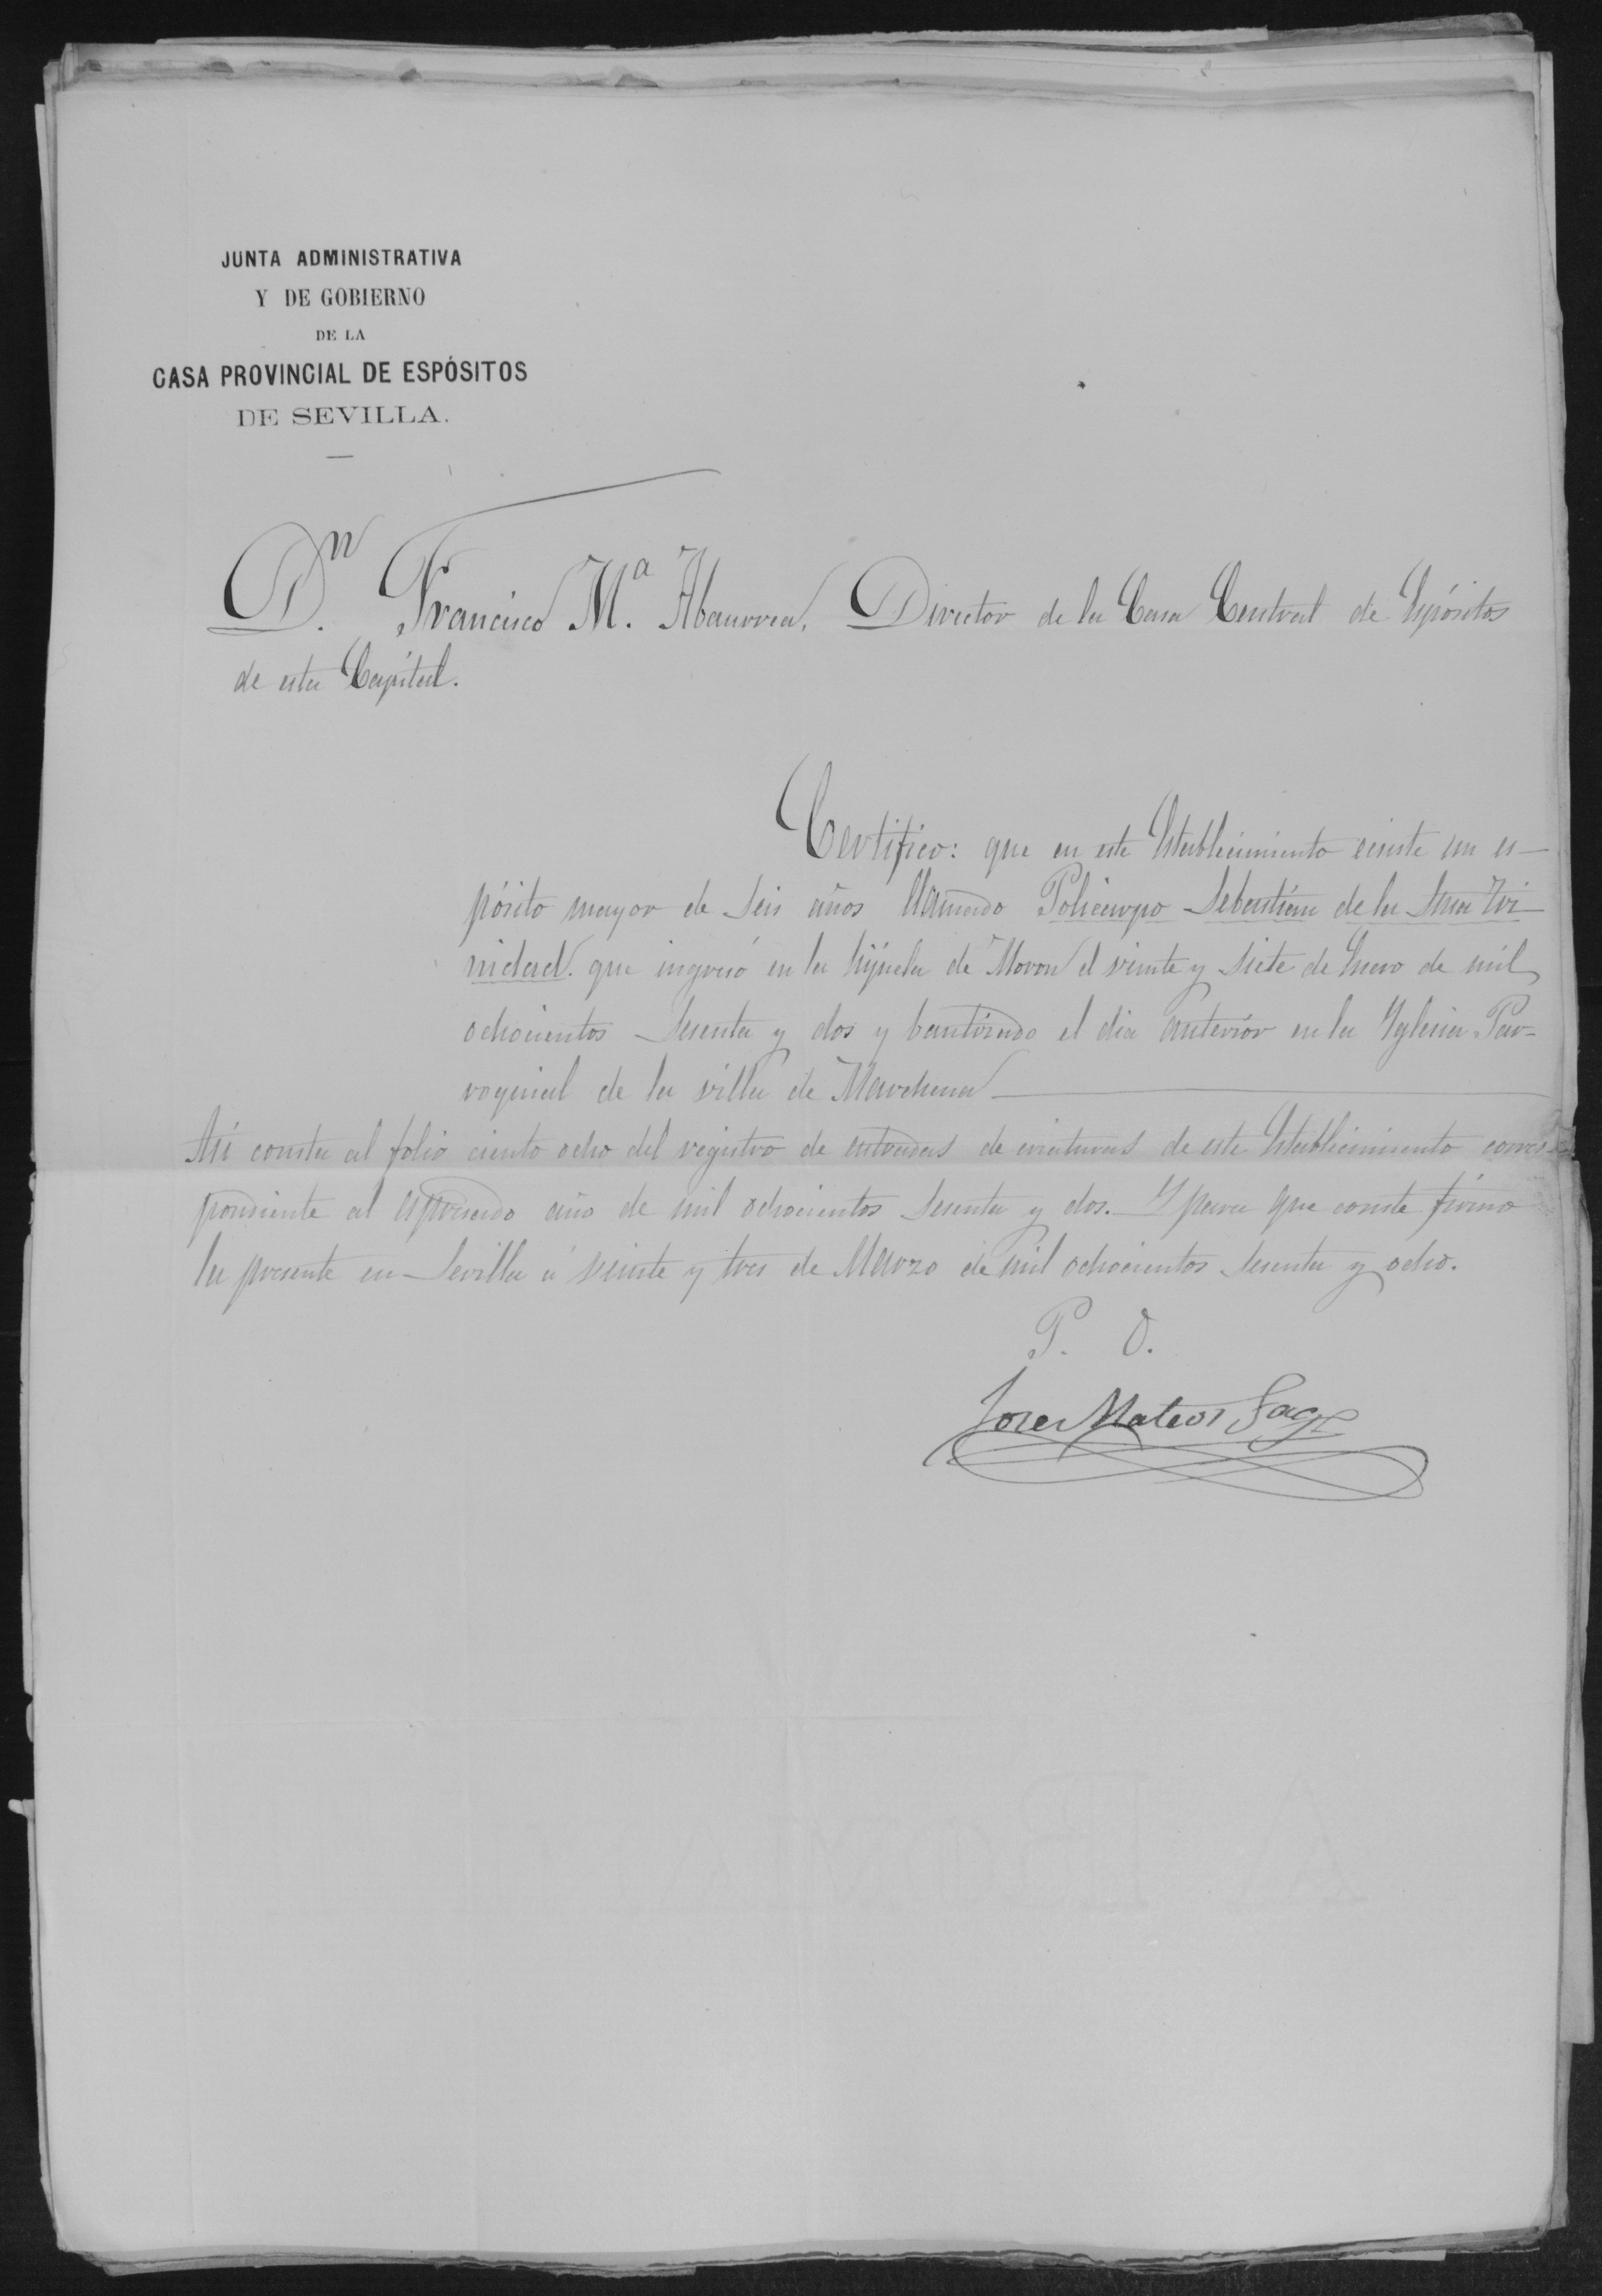 JUNTA ADMINISTRATIVA
Y DE GOBIERNO
DE LA
CASA PROVINCIAL DE ESPÓSITOS
DE SEVILLA.
Dn. Francisco Mª. Abaurrea, Director de la Casa Central de Espósitos
de esta Capital.
Certifico: que en este Establecimiento ecsiste un es-
pósito mayor de seis años llamado Policarpo Sebastián de la Sma Tri
nidad. que ingresó en la hijuela de Moron el veinte y siete de Enero de mil
ochocientos sesenta y dos y bautizado el dia anterior en la Yglesia Par-
roquial de la villa de Marchena
Asi consta al folio ciento ocho del registro de entradas de criaturas de este Establecimiento corres
pondiente al espresado año de mil ochocientos sesenta y dos. Y para que conste firmo
la presente en Sevilla á veinte y tres de Marzo de mil ochocientos sesenta y ocho.
P. O.
Jose Mateos